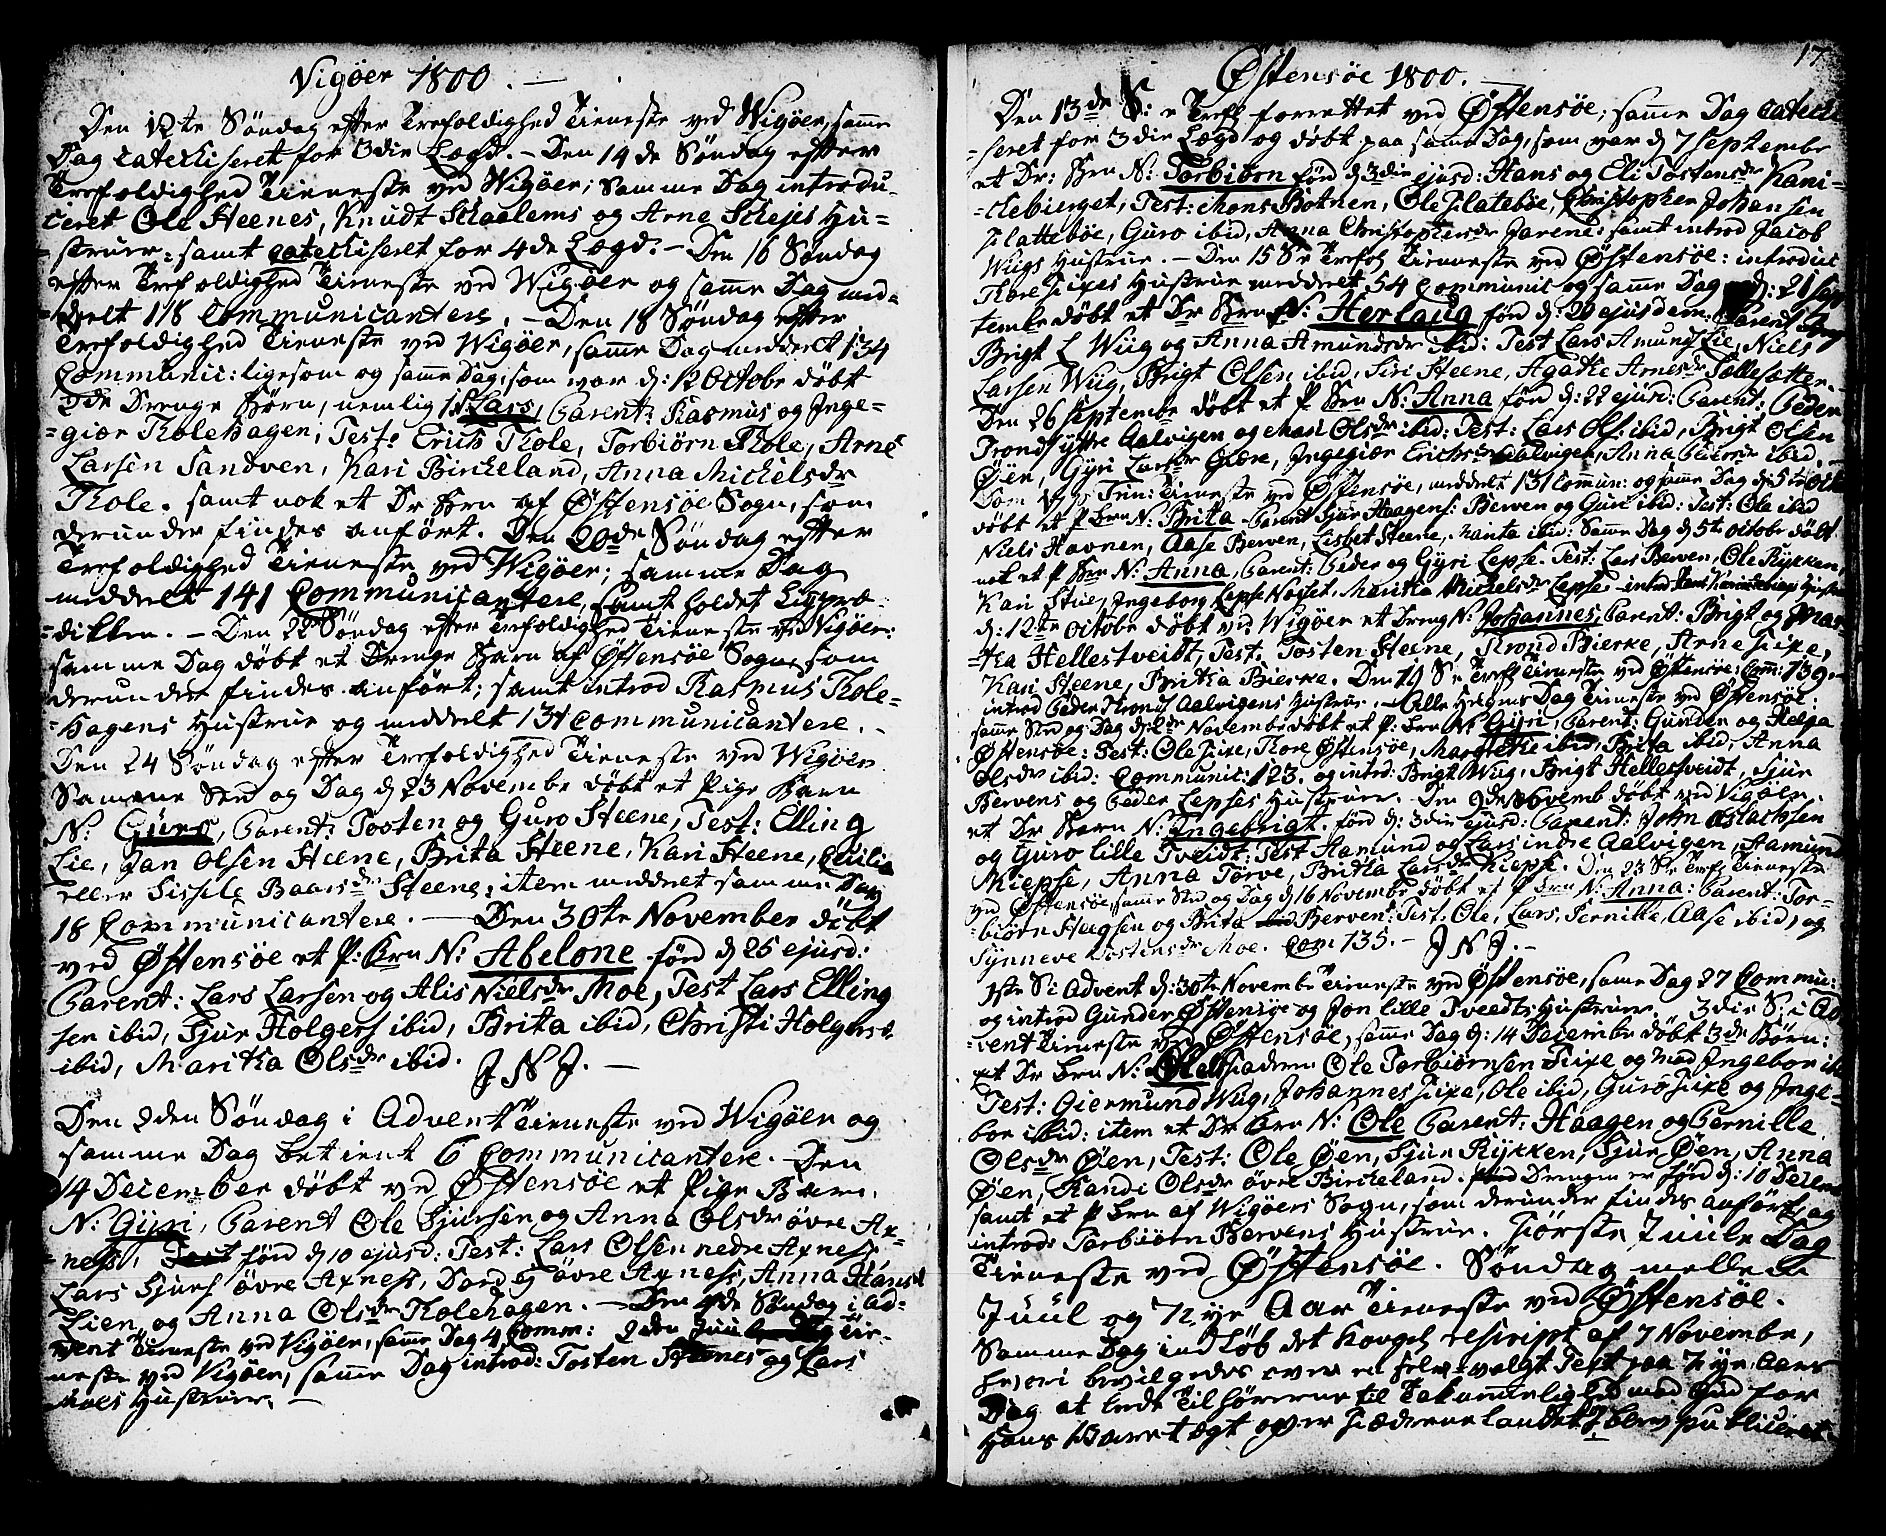 Vigøer 1800. —
Den 12te Söndag efter Trefoldighed Tieneste ved Wigöer, samme
Dag Catechiseret for 3die Lægd. – Den 14de Söndag efter
Trefoldighed Tieneste ved Wigöer; samme Dag introdu-
ceret Ole Steenes, Knudt Schaalems og Arne Schejes Hu-
-struer: samt Catechiseret for 4de Lægd. – Den 16 Söndag
efter Trefoldighed Tieneste ved Wigöer og samme Dag med-
-deelt 118 Communicantere. – Den 18 Söndag efter
Trefoldighed Tieneste ved Wigöer, samme Dag meddeelt 134
Communic: ligesom og samme Dag, som var d: 12 Octobr döbt
2de Drenge Börn, nemlig 1 N: Lars, Parent: Rasmus og Inge-
-giær Tolehagen; Test: Erich Thole, Torbiörn Thole, Arne
Larsen Sandven, Kari Birckeland, Anna Michelsdr
Thole. samt nok et Dr Brn af Østensöe Sogn, som
derunder findes anfört. Den 20de Söndag efter
Trefoldighed Tieneste ved Wigöer; samme Dag
meddeelt 141 Communicantere, samt holdet Ligpræ-
-diken. – Den 22 Söndag efter Trefoldighed Tieneste ved Vigöer:
samme Dag döbt et Drenge Barn af Østensöe Sogn, som
derunder findes anfört; samt introd Rasmus Thole-
-hagens Hustrue og meddeelt 131 Communicantere. –
Den 24 Söndag efter Trefoldighed Tieneste ved Wigöer
Samme Sted og Dag d 23 Novembr döbt et Pige Barn
N: Guro, Parent: Tosten og Guro Steene; Test: Elling
Lie, Jan Olsen Steene, Brita Steene, Kari Steene, Cecilia
eller Sissele Baarsdr Steene; item meddeelt samme Dag
18 Communicantere. — Den 30te November döbt
ved Østensöe et P: Brn N: Abelone föd d 25 ejusd:
Parent: Lars Larsen og Alis Nielsdr Moe, Test Lars Elling
sen ibid, Sjur Holgers ibid, Brita ibid, Christi Holgersdr
ibid, Maritha Olsdr ibid. J N J. —
Den 2den Söndag i Advent Tieneste ved Wigöer og
samme Dag betient 6 Communicantere. Den
14 December döbt ved Østensöe et Pige Barn.
N: Gyri, Parent Ole Sjursen og Anna Olsdr övre Ax-
-ness, föd d 10 ejusd: Test: Lars Olsen nedre Axness,
Lars Sjurs övre Axness, Dordj övre Axness, Anna Hansdr
Lien, og Anna Olsdr Tolehagen. – Den 4de Söndag i Ad-
vent Tieneste ved Vigöer, samme Dag 4 Comm: 2den Juule Dag Tie-
neste ved Vigöer, samme Dag introd: Tosten Steenes og Lars
Moes Hustruer. —
17
Østensöe 1800. —
Den 13de S: e Tref forrettet ved Østensöe; samme Dag Cateche
-seret for 3die Lægd og döbt paa samme Dag, som var d 7 Septembr
et Dr: Brn N: Torbiörn föd d 3die ejusd: Hans og Eli Tostensdr Kani-
-ckebierget, Test: Mons Botnen, Ole Flatebøe, Christopher Johansen
Flattebøe, Guro ibid, Anna Christophersdr Jarene: samt introd Jacob
Wiigs Hustrue. – Den 15 S e Trefol Tieneste ved Østensöe: introduc
Thore Fixes Hustrue meddeelt 54 Communic og samme Dag d: 21 Sep
tembr döbt et Dr Brn N: Herlaug föd d: 20 ejusdem. Parent
Brigt L Wiig og Anna Amundsdr ibid: Test Lars Amunds Lie, Niels
Larsen Wiig, Brigt Olsen ibid, Siri Steene, Agathe Arnesdr Tællesætter.
Den 26 Septembr döbt et P Brn N: Anna föd d: 22 ejusd: Parent: Peder
Trondss Ytre Aalvigen og Mari Olsdr ibid: Test: Lars Ols: ibid, Brigt Olsen
Øen, Gyri Larsdr Giære, Ingegiær Erichsdr Aalvigen, Anna Pedersdr ibid. –
Tieneste ved Østensöe, meddeelt 131 Commun: og samme Dag d: 5te Oct
döbt et P Brn N: Brita Parent Sjur Haagens: Berven og Guri ibid: Test: Ola ibid
Niels Havnen, Aase Berven, Lisbet Steene, Marita ibid: Samme Dag d 5te Octobr döbt
nok et P Brn N: Anna, Parent: Peder og Gyri Lepse. Test: Lars Berven, Ole Rykken
Kari Stue, Ingeborg Lepse Nöset, Maritha Michelsdr Lepse – introd
d: 12te Octobr döbt ved Wigöer et Dreng N: Johannes, Parent: Brigt og Mar-
-tha Hellestveidt, Test: Tosten Steene, Trond Bierke, Arne Fixe,
Kari Steene, Britha Bierke. Den 19 S e Tref Tieneste ved Østensöe; Comm: 139.
introd Peder Tronds Aalvigens Hustrue. – Alle Helgens Dag Tieneste ved Østensöe:
samme Sted og Dag d 2de Novembr döbt et P: Brn N: Gyri, Parent: Gunder og Helga
Østensöe: Test: Ole Fixe, Thore Østensöe, Marthe ibid, Brita ibid, Anna
Olsdr ibid: Communic: 123. og introd: Brigt Wiig, Brigt Hellestveidt, Sjur
Bervens og Peder Lepses Hustruer. Den 9de Novemb döbt ved Vigöer
et Dr Barn N: Ingebrigt. föd d: 3die ejusd: Parent: John Aslachsen
og Guro lille Tveidt: Test Aamund og Lars indre Aalvigen, Aamund
Kiepse, Anna Torve, Britha Larsdr Kiepse. Den 23 S e Tref: Tieneste
ved Østensöe, samme Sted og Dag d 16 Novembr döbt et P Brn N: Anna: Parent: Tor-
-biörn Haagsen og Brita Berven: Test: Ole, Lars, Pernille, Aase ibid, og
Synneve Tostensdr Moe. Com 135. – J N J. –
1ste S i Advent d: 30te Novembr Tieneste ved Østensöe, samme Dag 27 Commu:
og introd Gunder Østensöe og Jon lille Tveedts Hustruer. 3die S: i Ad-
-vent Tieneste ved Østensöe, samme Dag d: 14 Decembr döbt 3de Börn:
et Dr Brn N: Ole Faderen Ole Torbiörnsen Fixe og Mod Ingebor ibid
Test: Giermund Wiig, Johannes Fixe, Ole ibid, Guro Fixe og Inge-
bor ibid: item et Dr Brn N: Ole Parent: Haagen og Pernille
Olsdr Øen, Test: Ole Øen, Sjur Rykken, Sjur Øen, Anna
Øen, Randi Olsdr övre Birckeland. Drengen er föd d: 10 Decem
samt et P Brn af Wigöers Sogn, som derunder findes anfört, og
introd: Torbiörn Bervens Hustrue. Förste Juule Dag
Tieneste ved Østensöe. Söndag mellem
Juul og Nyt Aar Tieneste ved Østensöe.
Samme Dag indløb det Kongel rescript af 7 Novembr,
hvori bevilgedes over en selv-valgt Text paa Nyt Aars
Dag at lede Tilhörerne til Taknemmelighed mod Gud for
Hans Varetægt over Fædrenelandet, blev publiceret.